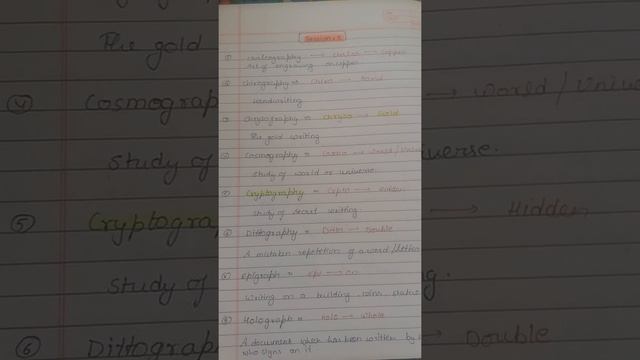 Session-8
① Chalcography ⟶ Chalco ⟶ Copper
Art of engraving on copper
② Chirography = Chiro ⟶ Hand
Handwriting
③ Chrysography = Chryso ⟶ Gold
The gold writing
④ Cosmography = Cosmo ⟶ World / Universe
Study of world or universe.
⑤ Cryptography = Cryto ⟶ Hidden
Study of secret writing.
⑥ Dittography = Ditto ⟶ Double
A mistaken repetition of a word / letter
⑦ Epigraph = Epi ⟶ on
Writing on a building, coins, statue
⑧ Holograph = Holo ⟶ Whole
A document which has been written by
who signs on it
The gold
④ Cosmograp
⟶ World / Unive
Study of
iverse.
⑤ Cryptogra
⟶ Hidden
Study of
g.
⑥ Dittograp
Double